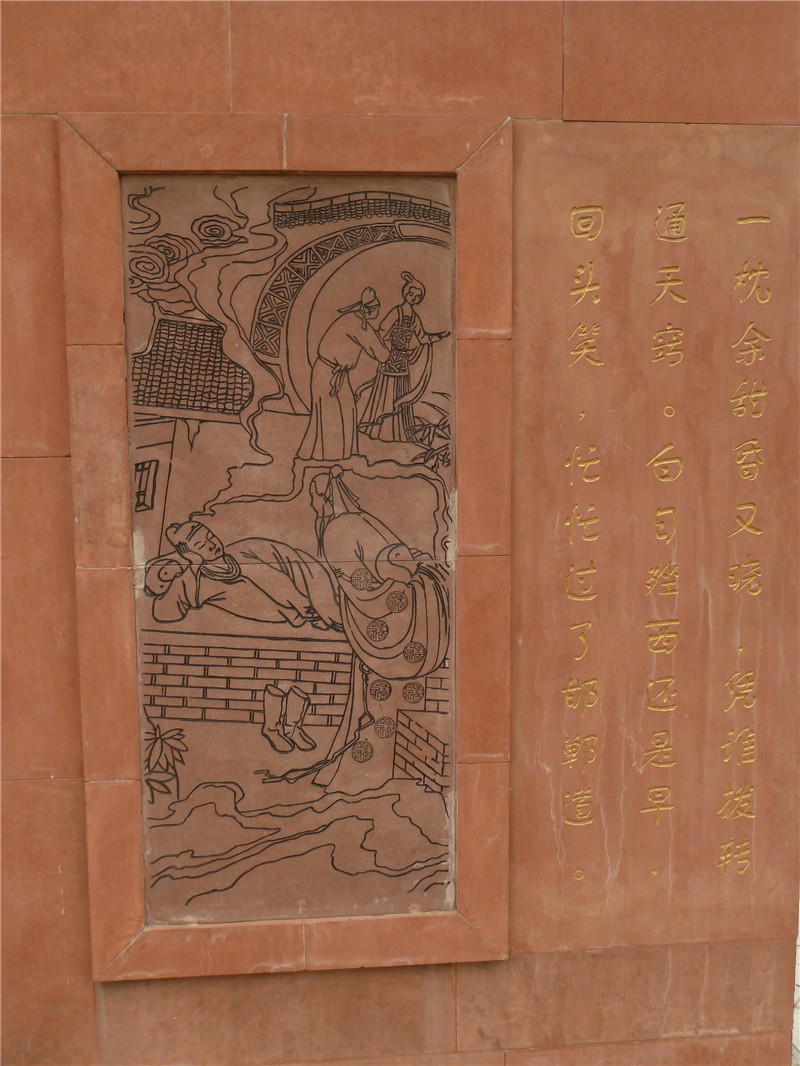 一枕余甜昏又晓，凭谁拨转
通天窍。白日蹉西还是早，
回头笑，忙忙过了邯郸道。